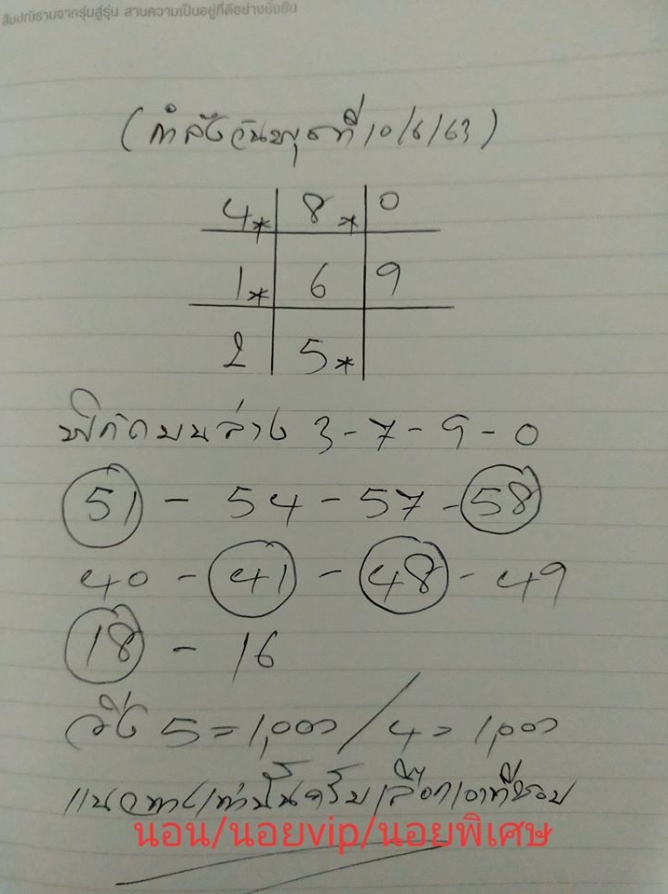 สัมปณีธานจากรุ่นสู่รุ่น สานความเป็นอยู่ที่ดีอย่างยั่งยืน
(กำลังวันพุธที่ 10/6/63)
4* 8* 0
1* 6 9
2 5*
พิกัดบนล่าง 3-7-9-0
51 - 54 - 57 - 58
40 - 41 - 48 - 49
18 - 16
วิ่ง 5=1,000 / 4=1,000
แนวทางเท่านั้นครับเลือกเอาที่ชอบ
นอน/นอยvip/นอยพิเศษ